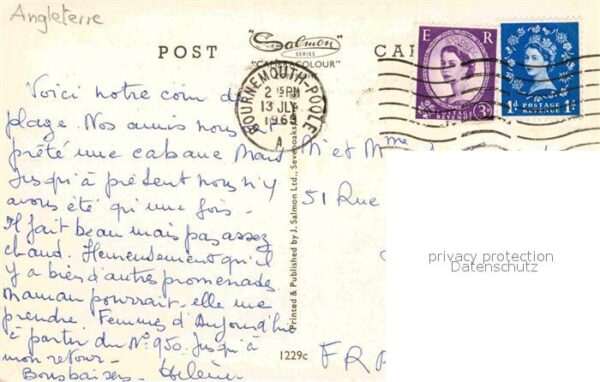 Angleterre
POST CA
"Salmon"
SERIES
BOURNEMOUTH-POOLE
2 15 PM
13 JLY
1963
A
E R
POSTAGE
REVENUE
3D
1D POSTAGE 1D
REVENUE
Voici notre coin de
plage. Nos amis nous ont
prêté une cabane mais
jusqu'à présent nous n'y
avons été qu'une fois.
Il fait beau mais pas assez
chaud. Heureusement qu'il
y a bien d'autres promenades
Maman pourrait-elle me
prendre Femmes d'Aujourd'hui
à partir du N° 950 jusqu'à
mon retour -
Bons baisers - Hélène
Printed & Published by J. Salmon Ltd., Sevenoaks
1229c
M et Mme
51 Rue
FRA
privacy protection
Datenschutz